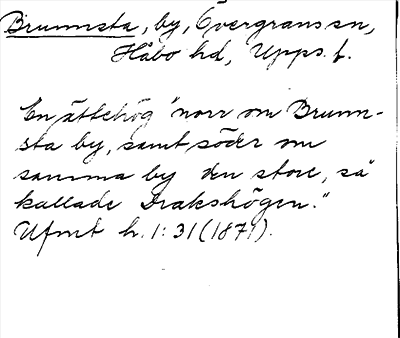 Brunnsta, by, Övergrans sn,
Håbo hd, Upps. l.
En ättehög "norr om Brunn-
sta by, samt söder om
samma by den store, så
kallade Drakshögen."
Ufmt h. 1:31 (1871).